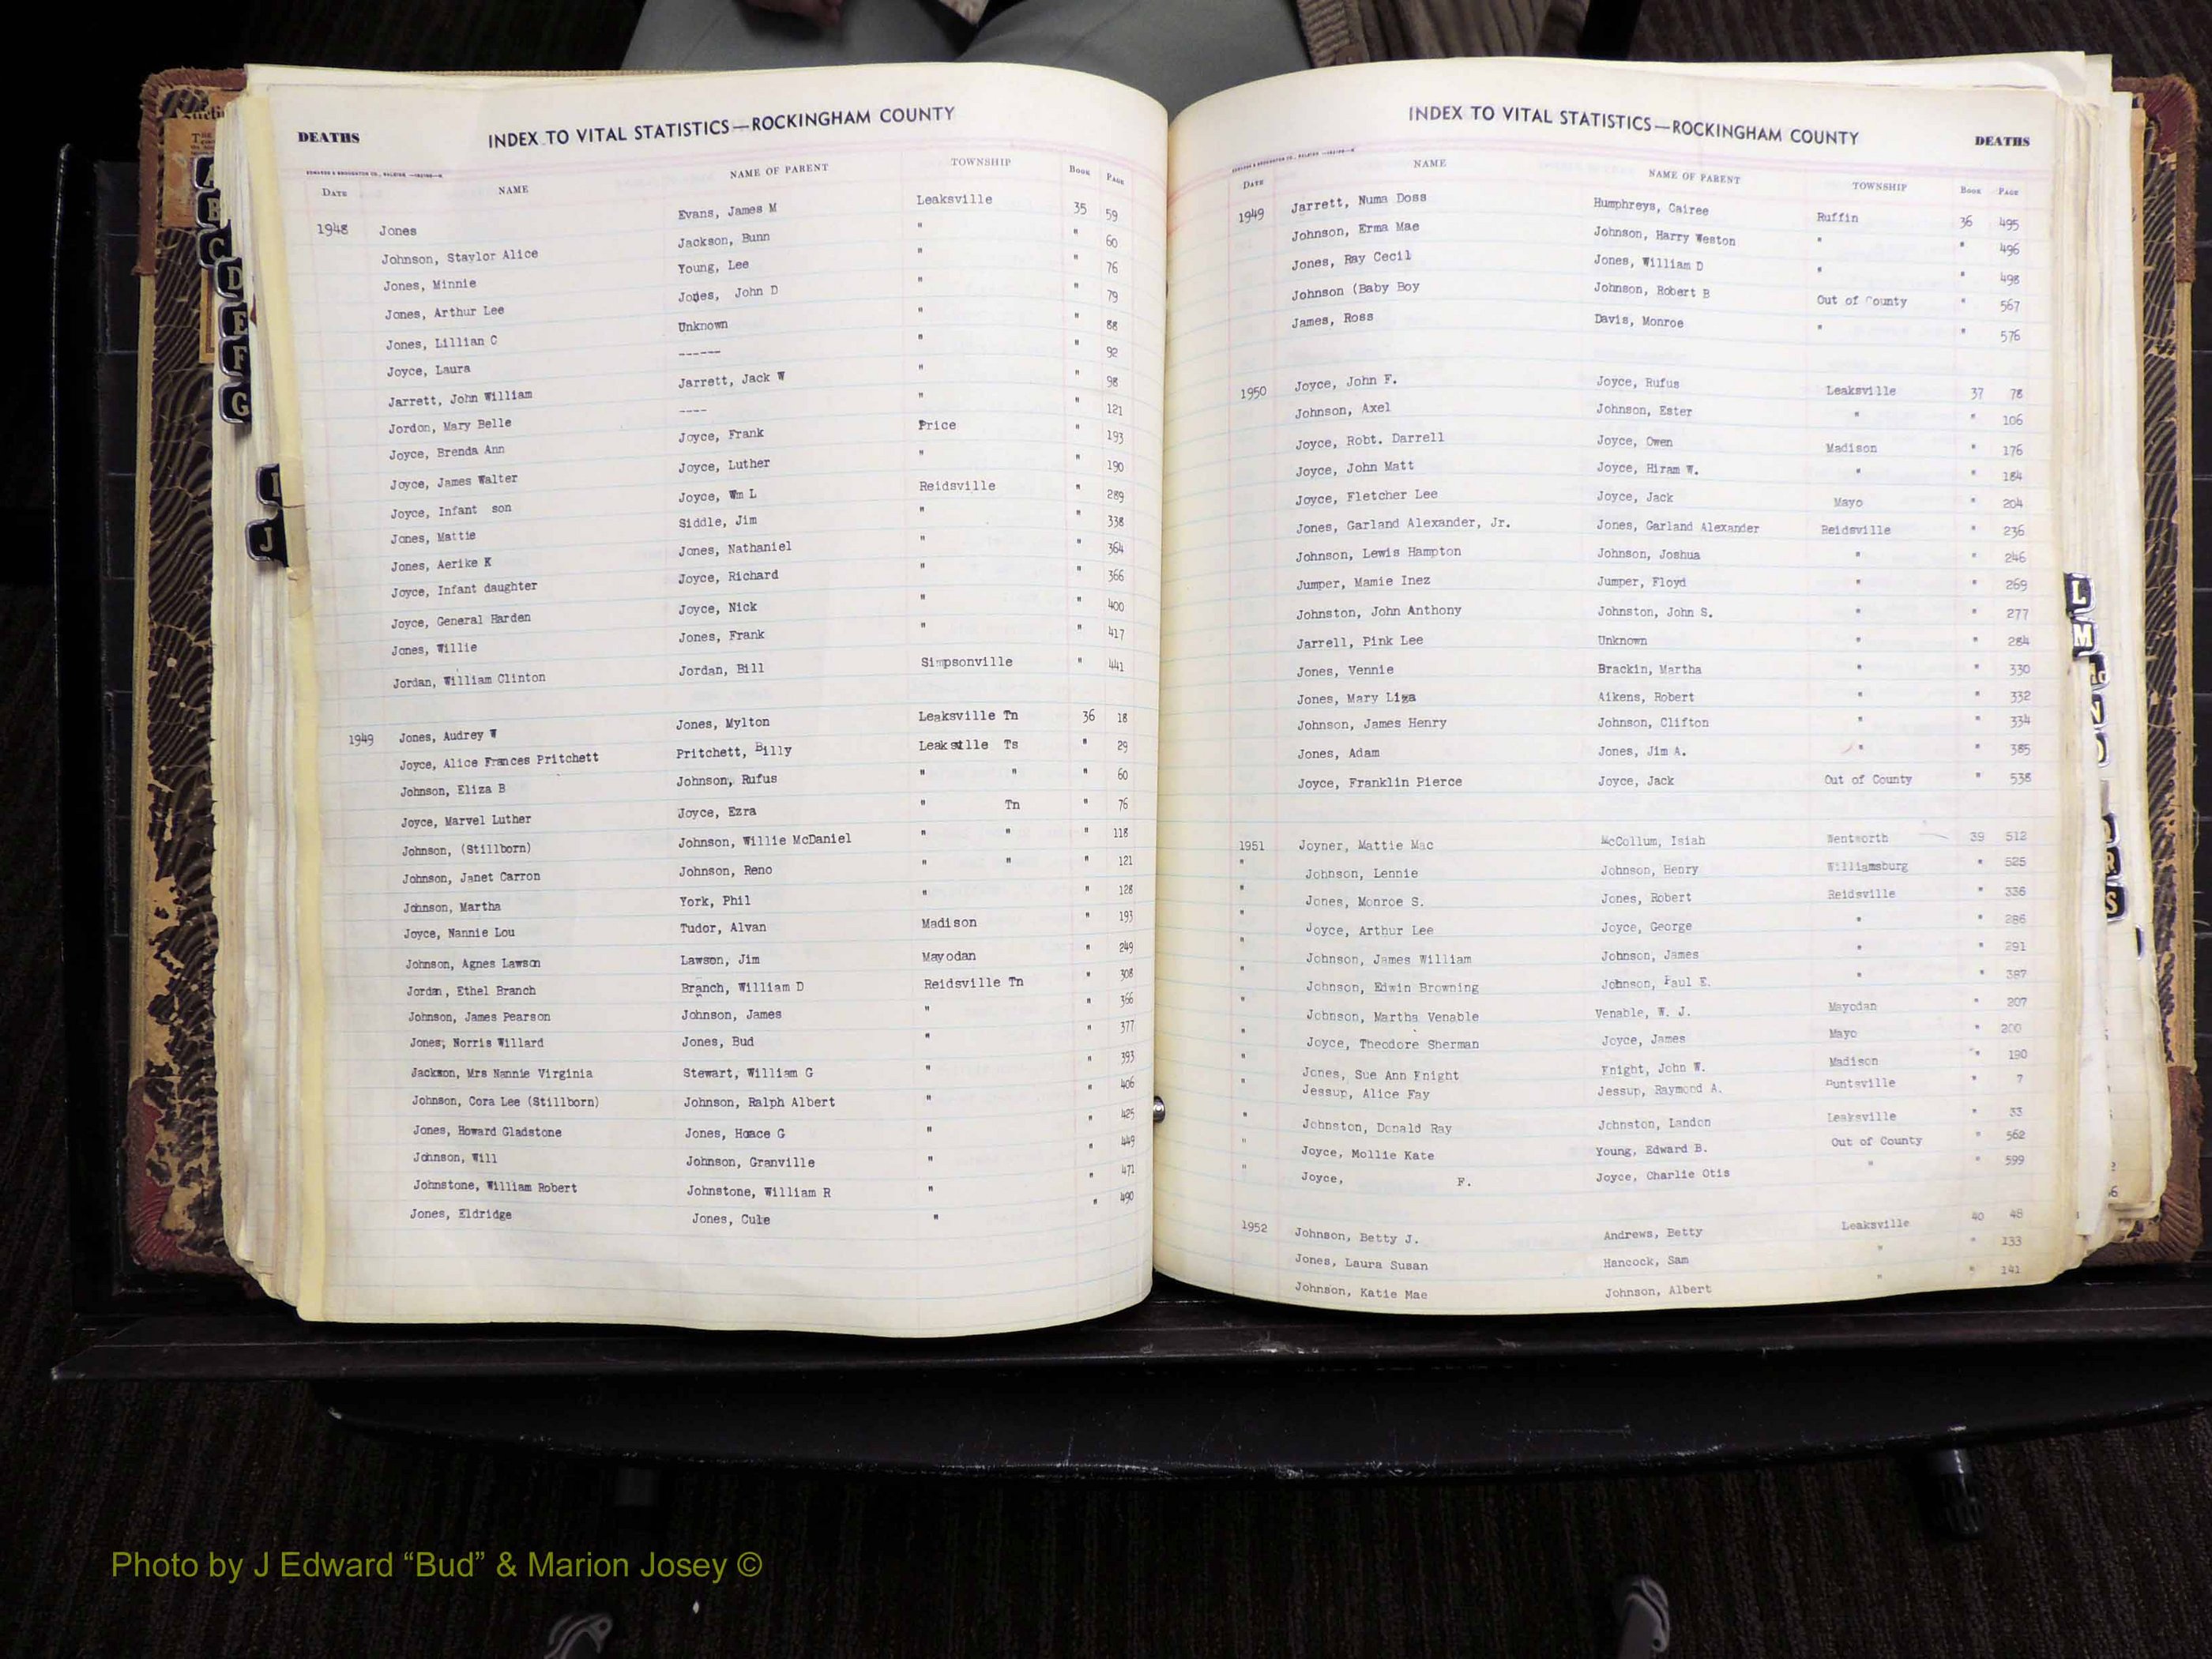 DEATHS INDEX TO VITAL STATISTICS—ROCKINGHAM COUNTY
DATE NAME NAME OF PARENT TOWNSHIP BOOK PAGE
1948 Jones Evans, James M Leaksville 35 59
Johnson, Staylor Alice Jackson, Bunn " " 60
Jones, Minnie Young, Lee " " 76
Jones, Arthur Lee Jones, John D " " 79
Jones, Lillian C Unknown " " 88
Joyce, Laura ------ " " 92
Jarrett, John William Jarrett, Jack W " " 98
Jordon, Mary Belle ---- " " 121
Joyce, Brenda Ann Joyce, Frank Price " 193
Joyce, James Walter Joyce, Luther " " 190
Joyce, Infant son Joyce, Wm L Reidsville " 289
Jones, Mattie Siddle, Jim " " 338
Jones, Aerike K Jones, Nathaniel " " 364
Joyce, Infant daughter Joyce, Richard " " 366
Joyce, General Harden Joyce, Nick " " 400
Jones, Willie Jones, Frank " " 417
Jordan, William Clinton Jordan, Bill Simpsonville " 441
1949 Jones, Audrey W Jones, Mylton Leaksville Tn 36 18
Joyce, Alice Frances Pritchett Pritchett, Billy Ts " 29
Johnson, Eliza B Johnson, Rufus " " " 60
Joyce, Marvel Luther Joyce, Ezra " Tn " 76
Johnson, (Stillborn) Johnson, Willie McDaniel " " " 118
Johnson, Janet Carron Johnson, Reno " " " 121
Johnson, Martha York, Phil " " 128
Joyce, Nannie Lou Tudor, Alvan Madison " 193
Johnson, Agnes Lawson Lawson, Jim Mayodan " 249
Jordan, Ethel Branch Branch, William D Reidsville Tn " 308
Johnson, James Pearson Johnson, James " " 366
Jones, Norris Willard Jones, Bud " " 377
Jackson, Mrs Nannie Virginia Stewart, William G " " 393
Johnson, Cora Lee (Stillborn) Johnson, Ralph Albert " " 406
Jones, Howard Gladstone Jones, Horace G " " 425
Johnson, Will Johnson, Granville " " 449
Johnstone, William Robert Johnstone, William R " " 471
Jones, Eldridge Jones, Cule " " 490
INDEX TO VITAL STATISTICS—ROCKINGHAM COUNTY DEATHS
DATE NAME NAME OF PARENT TOWNSHIP BOOK PAGE
1949 Jarrett, Numa Doss Humphreys, Cairee Ruffin 36 495
Johnson, Erma Mae Johnson, Harry Weston " " 496
Jones, Ray Cecil Jones, William D " " 498
Johnson (Baby Boy Johnson, Robert B Out of County " 567
James, Ross Davis, Monroe " " 576
1950 Joyce, John F. Joyce, Rufus Leaksville 37 78
Johnson, Axel Johnson, Ester " " 106
Joyce, Robt. Darrell Joyce, Owen Madison " 176
Joyce, John Matt Joyce, Hiram W. " " 184
Joyce, Fletcher Lee Joyce, Jack Mayo " 204
Jones, Garland Alexander, Jr. Jones, Garland Alexander Reidsville " 236
Johnson, Lewis Hampton Johnson, Joshua " " 246
Jumper, Mamie Inez Jumper, Floyd " " 269
Johnston, John Anthony Johnston, John S. " " 277
Jarrell, Pink Lee Unknown " " 284
Jones, Vennie Brackin, Martha " " 330
Jones, Mary Liza Aikens, Robert " " 332
Johnson, James Henry Johnson, Clifton " " 334
Jones, Adam Jones, Jim A. " " 385
Joyce, Franklin Pierce Joyce, Jack Out of County " 538
1951 Joyner, Mattie Mac McCollum, Isiah Wentworth 39 512
" Johnson, Lennie Johnson, Henry Williamsburg " 525
" Jones, Monroe S. Jones, Robert Reidsville " 336
" Joyce, Arthur Lee Joyce, George " " 286
" Johnson, James William Johnson, James " " 291
" Johnson, Edwin Browning Johnson, Paul E. " " 387
" Johnson, Martha Venable Venable, W. J. Mayodan " 207
" Joyce, Theodore Sherman Joyce, James Mayo " 200
" Jones, Sue Ann Knight Knight, John W. Madison " 190
" Jessup, Alice Fay Jessup, Raymond A. Huntsville " 7
" Johnston, Donald Ray Johnston, Landon Leaksville " 33
" Joyce, Mollie Kate Young, Edward B. Out of County " 562
" Joyce, F. Joyce, Charlie Otis " " 599
1952 Johnson, Betty J. Andrews, Betty Leaksville 40 48
Jones, Laura Susan Hancock, Sam " " 133
Johnson, Katie Mae Johnson, Albert " " 141
A
B
C
D
E
F
G
I
J
L
M
R
S
Photo by J Edward “Bud” & Marion Josey ©